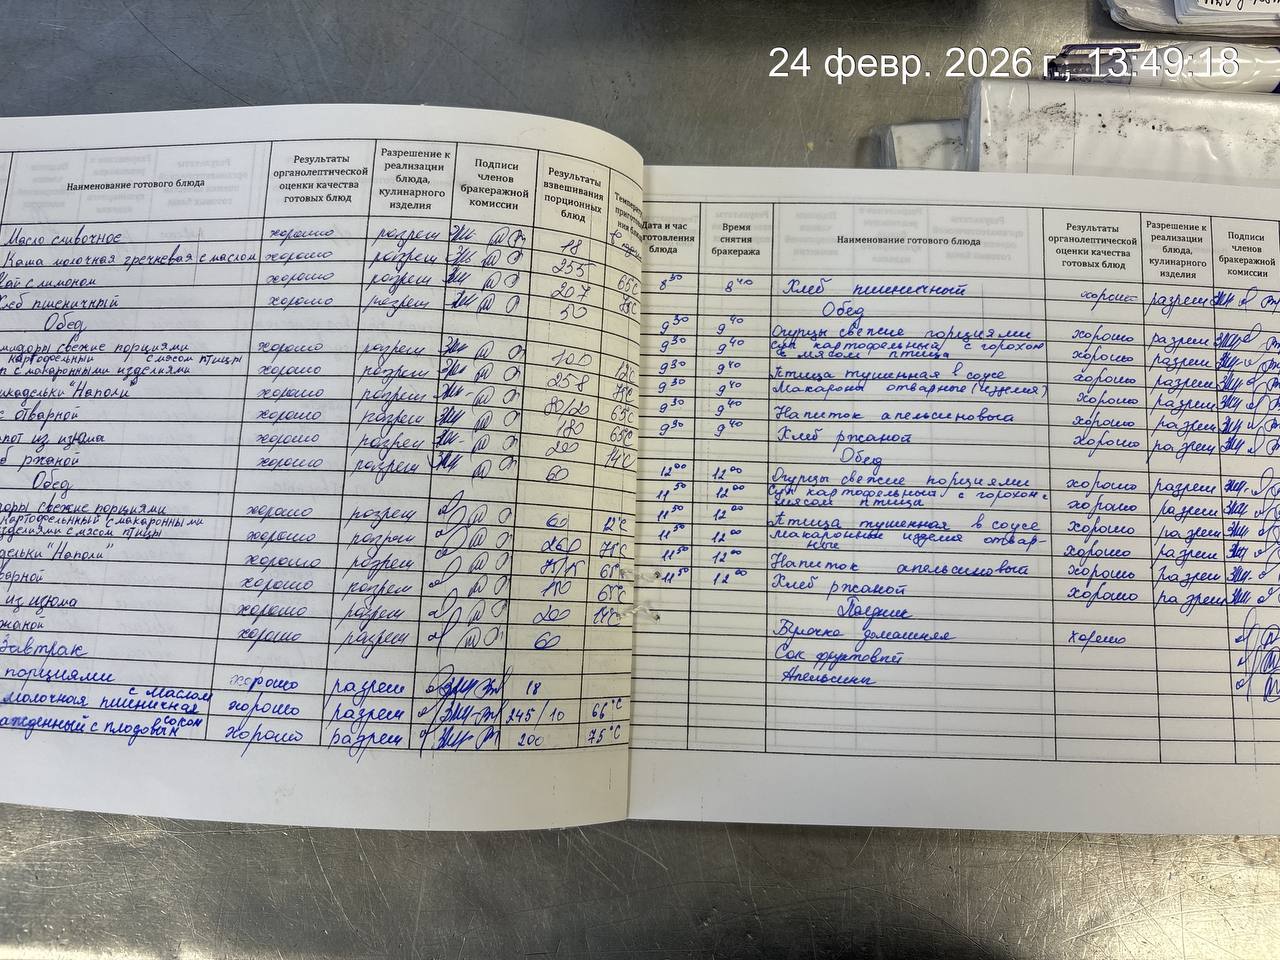 24 февр. 2026 г., 13:49:18
Наименование готового блюда
Результаты органолептической оценки качества готовых блюд
Разрешение к реализации блюда, кулинарного изделия
Подписи членов бракеражной комиссии
Результаты взвешивания порционных блюд
Масло сливочное хорошо разреш 18
Каша молочная гречневая с маслом хорошо разреш 255 65С
Чай с лимоном хорошо разреш 207 75С
Хлеб пшеничный хорошо разреш 50
Обед
свежие порциями хорошо разреш 100 12°С
картофельный с мясом птицы
с макаронными изделиями хорошо разреш 258 75С
"Наполи" хорошо разреш 80/20 65С
отварной хорошо разреш 180 65С
из изюма хорошо разреш 200 14°С
ржаной хорошо разреш 60
Обед
свежие порциями хорошо разреш 60 12°С
картофельный с макаронными
изделиями с мясом птицы хорошо разреш 260 75С
"Наполи" хорошо разреш 75/15 65С
хорошо разреш 65С
из изюма хорошо разреш 200 14°С
хорошо разреш 60
Завтрак
порциями хорошо разреш 18
молочная пшеничная с маслом хорошо разреш 245/10 66°С
с плодовым соком хорошо разреш 200 75°С
Дата и час готовления блюда
Время снятия бракеража
Наименование готового блюда
Результаты органолептической оценки качества готовых блюд
Разрешение к реализации блюда, кулинарного изделия
Подписи членов бракеражной комиссии
8 30 8 40 Хлеб пшеничный хорошо разреш
Обед
9 30 9 40 Огурцы свежие порциями хорошо разреш
9 30 9 40 Суп картофельный с горохом
с мясом птица хорошо разреш
9 30 9 40 Птица тушенная в соусе хорошо разреш
9 30 9 40 Макароны отварные (изделия) хорошо разреш
9 30 9 40 Напиток апельсиновый хорошо разреш
9 30 9 40 Хлеб ржаной хорошо разреш
Обед
12 00 12 00 Огурцы свежие порциями хорошо разреш
11 50 12 00 Суп картофельный с горохом с
мясом птица хорошо разреш
11 50 12 00 Птица тушенная в соусе хорошо разреш
11 50 12 00 Макаронные изделия отвар-
ные хорошо разреш
11 50 12 00 Напиток апельсиновый хорошо разреш
11 50 12 00 Хлеб ржаной хорошо разреш
Полдник
Булочка домашняя хорошо
Сок фруктовый
Апельсины